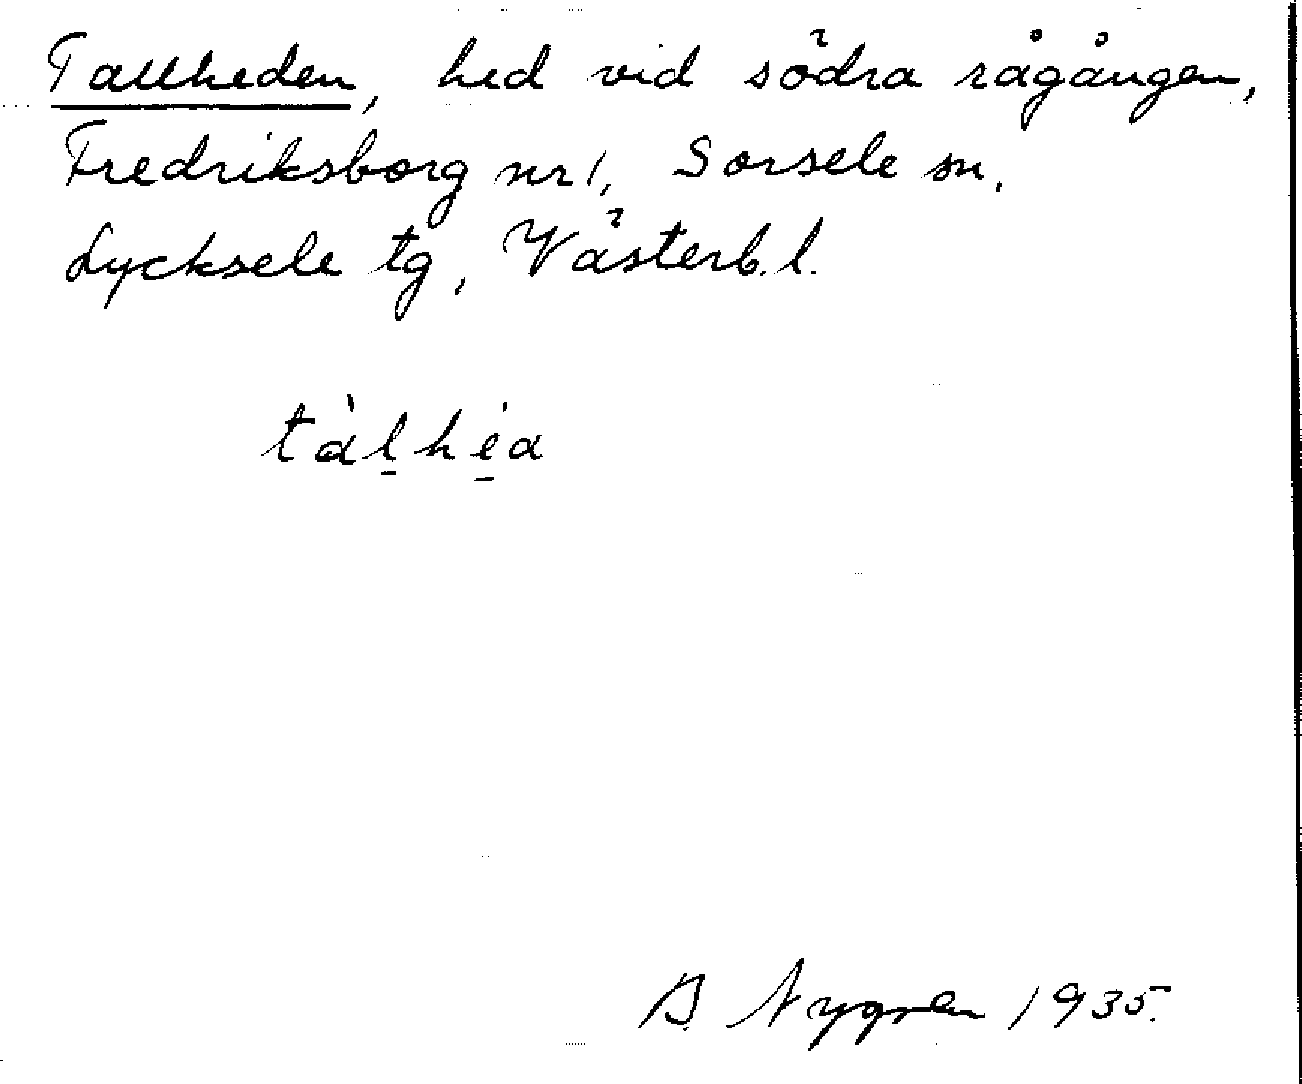 Tallheden, hed vid södra rågången,
Fredriksborg nr 1, Sorsele sn.
Lycksele tg, Västerb. l.
tàl̠hé̠a
B. Nygren 1935.